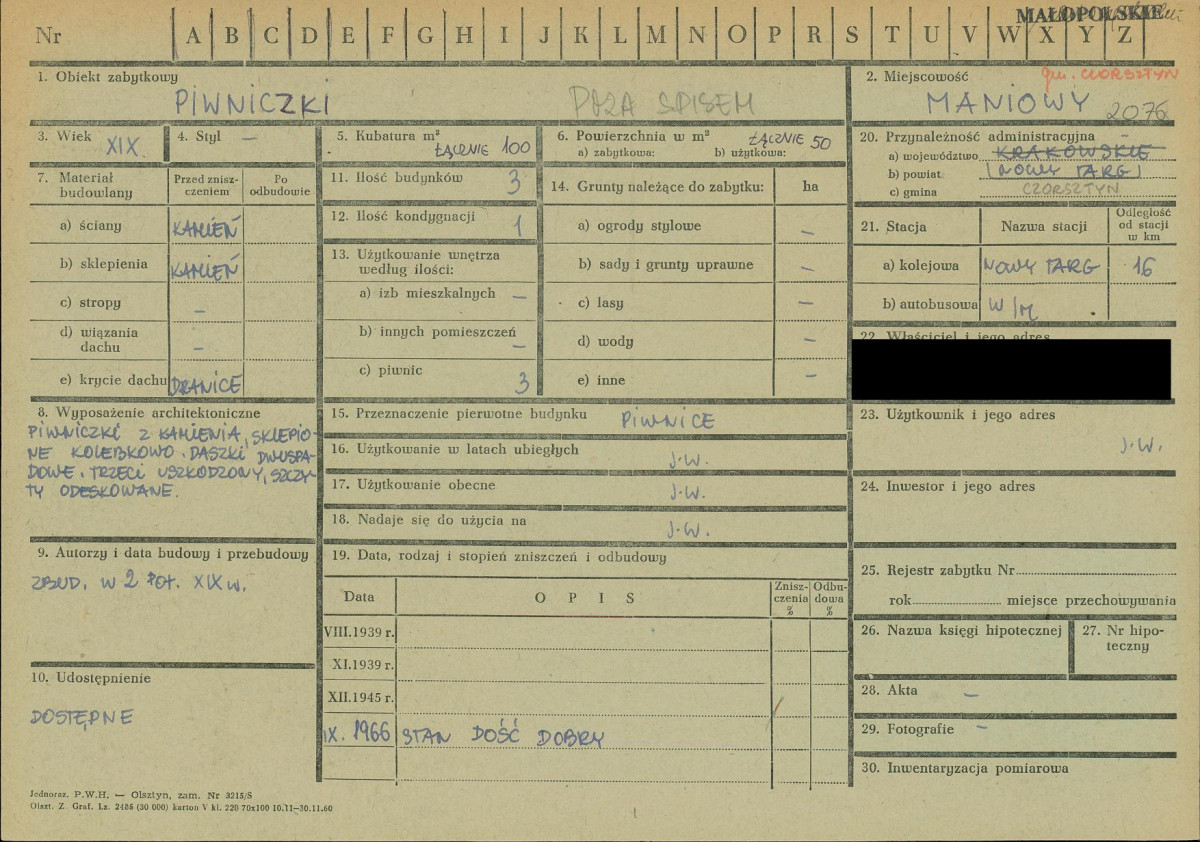 MAŁOPOLSKIE
Nr A B C D E F G H I J K L M N O P R S T U V W X Y Z
1. Obiekt zabytkowy
PIWNICZKI POZA SPISEM
2. Miejscowość
gm. CZORSZTYN
MANIOWY 2076
3. Wiek XIX
4. Styl –
5. Kubatura m³
ŁĄCZNIE 100
6. Powierzchnia w m²
ŁĄCZNIE 50
a) zabytkowa: b) użytkowa:
7. Materiał budowlany
Przed zniszczeniem
Po odbudowie
a) ściany KAMIEŃ
b) sklepienia KAMIEŃ
c) stropy –
d) wiązania dachu –
e) krycie dachu DRANICE
8. Wyposażenie architektoniczne
PIWNICZKI Z KAMIENIA, SKLEPIO-
NE KOLEBKOWO. DASZKI DWUSPA-
DOWE. TRZECI USZKODZONY, SZCZY-
TY ODESKOWANE.
9. Autorzy i data budowy i przebudowy
ZBUD. W 2 POŁ. XIX W.
10. Udostępnienie
DOSTĘPNE
11. Ilość budynków 3
12. Ilość kondygnacji 1
13. Użytkowanie wnętrza
według ilości:
a) izb mieszkalnych –
b) innych pomieszczeń –
c) piwnic 3
14. Grunty należące do zabytku: ha
a) ogrody stylowe –
b) sady i grunty uprawne –
c) lasy –
d) wody –
e) inne –
15. Przeznaczenie pierwotne budynku PIWNICE
16. Użytkowanie w latach ubiegłych J.W.
17. Użytkowanie obecne J.W.
18. Nadaje się do użycia na J.W.
19. Data, rodzaj i stopień zniszczeń i odbudowy
Data O P I S Zniszczenia % Odbudowa %
VIII.1939 r.
XI.1939 r.
XII.1945 r.
IX. 1966 STAN DOŚĆ DOBRY
20. Przynależność administracyjna –
a) województwo KRAKOWSKIE
b) powiat (NOWY TARG)
c) gmina CZORSZTYN
21. Stacja Nazwa stacji Odległość od stacji w km
a) kolejowa NOWY TARG 16
b) autobusowa W/M
22. Właściciel i jego adres
23. Użytkownik i jego adres
J.W.
24. Inwestor i jego adres
25. Rejestr zabytku Nr
rok miejsce przechowywania
26. Nazwa księgi hipotecznej
27. Nr hipoteczny
28. Akta –
29. Fotografie –
30. Inwentaryzacja pomiarowa
Jednoraz. P.W.H. — Olsztyn, zam. Nr 3215/S
Olszt. Z. Graf. Lz. 2486 (30 000) karton V kl. 220 70x100 10.11—30.11.60